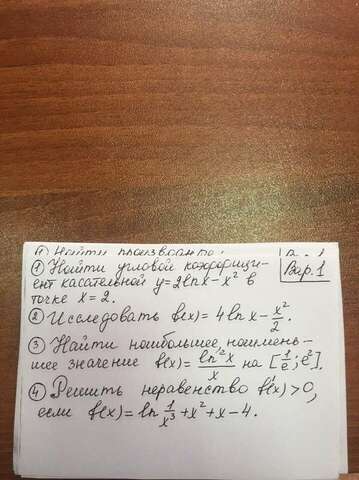 ① Найти угловой коэффици- Вар. 1
ент касательной y=2lnx-x² в
точке x=2.
② Исследовать f(x)=4lnx-x²/2.
③ Найти наибольшее, наимень-
шее значение f(x)=ln²x/x на [1/e; e²].
④ Решить неравенство f'(x)>0,
если f(x)=ln 1/x³+x²+x-4.